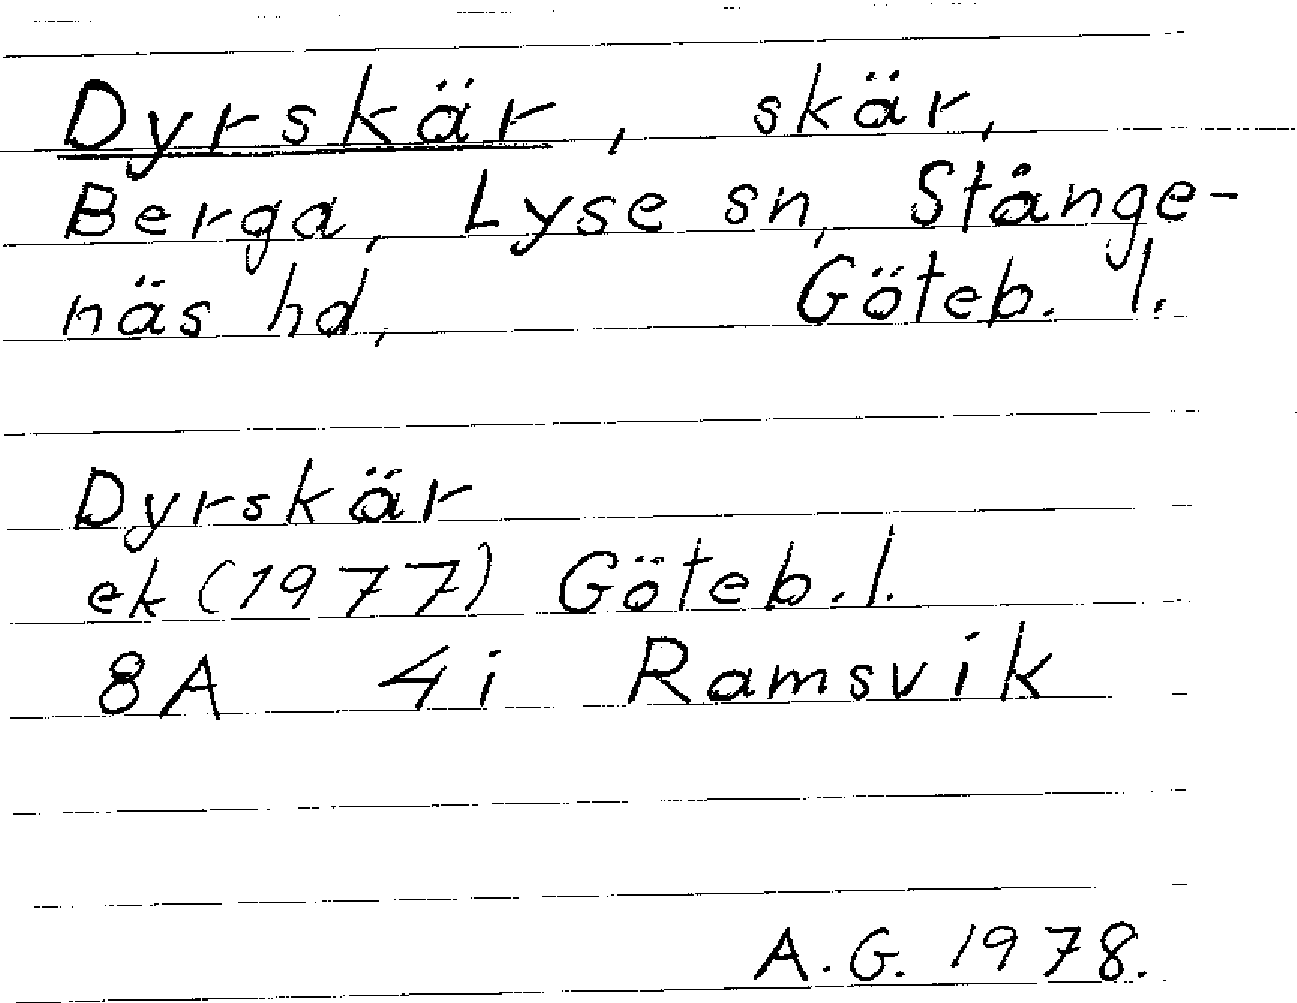 Dyrskär, skär,
Berga, Lyse sn, Stånge-
näs hd, Göteb. l.
Dyrskär
ek (1977) Göteb. l.
8A 4i Ramsvik
A. G. 1978.